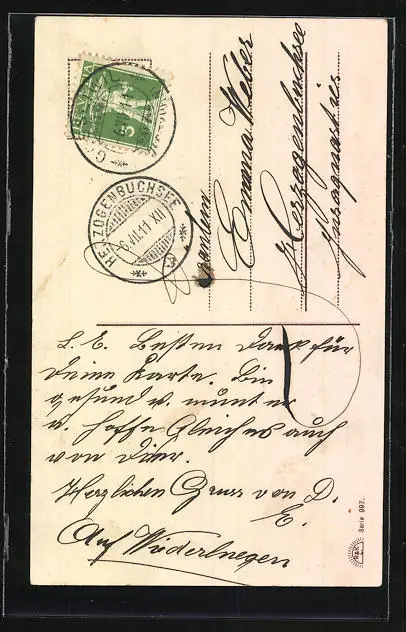 HELVETIA
5
HERZOGENBUCHSEE
6.VII.11.XII
Fräulein
Emma Weber
Herzogenbuchsee
L. E. Besten Dank für
Deine Karte. Bin
gesund u. munter
u. hoffe Gleiches auch
von Dir.
Herzlichen Gruss von D.
E.
Auf Wiedersehen
R&K
Serie 997.